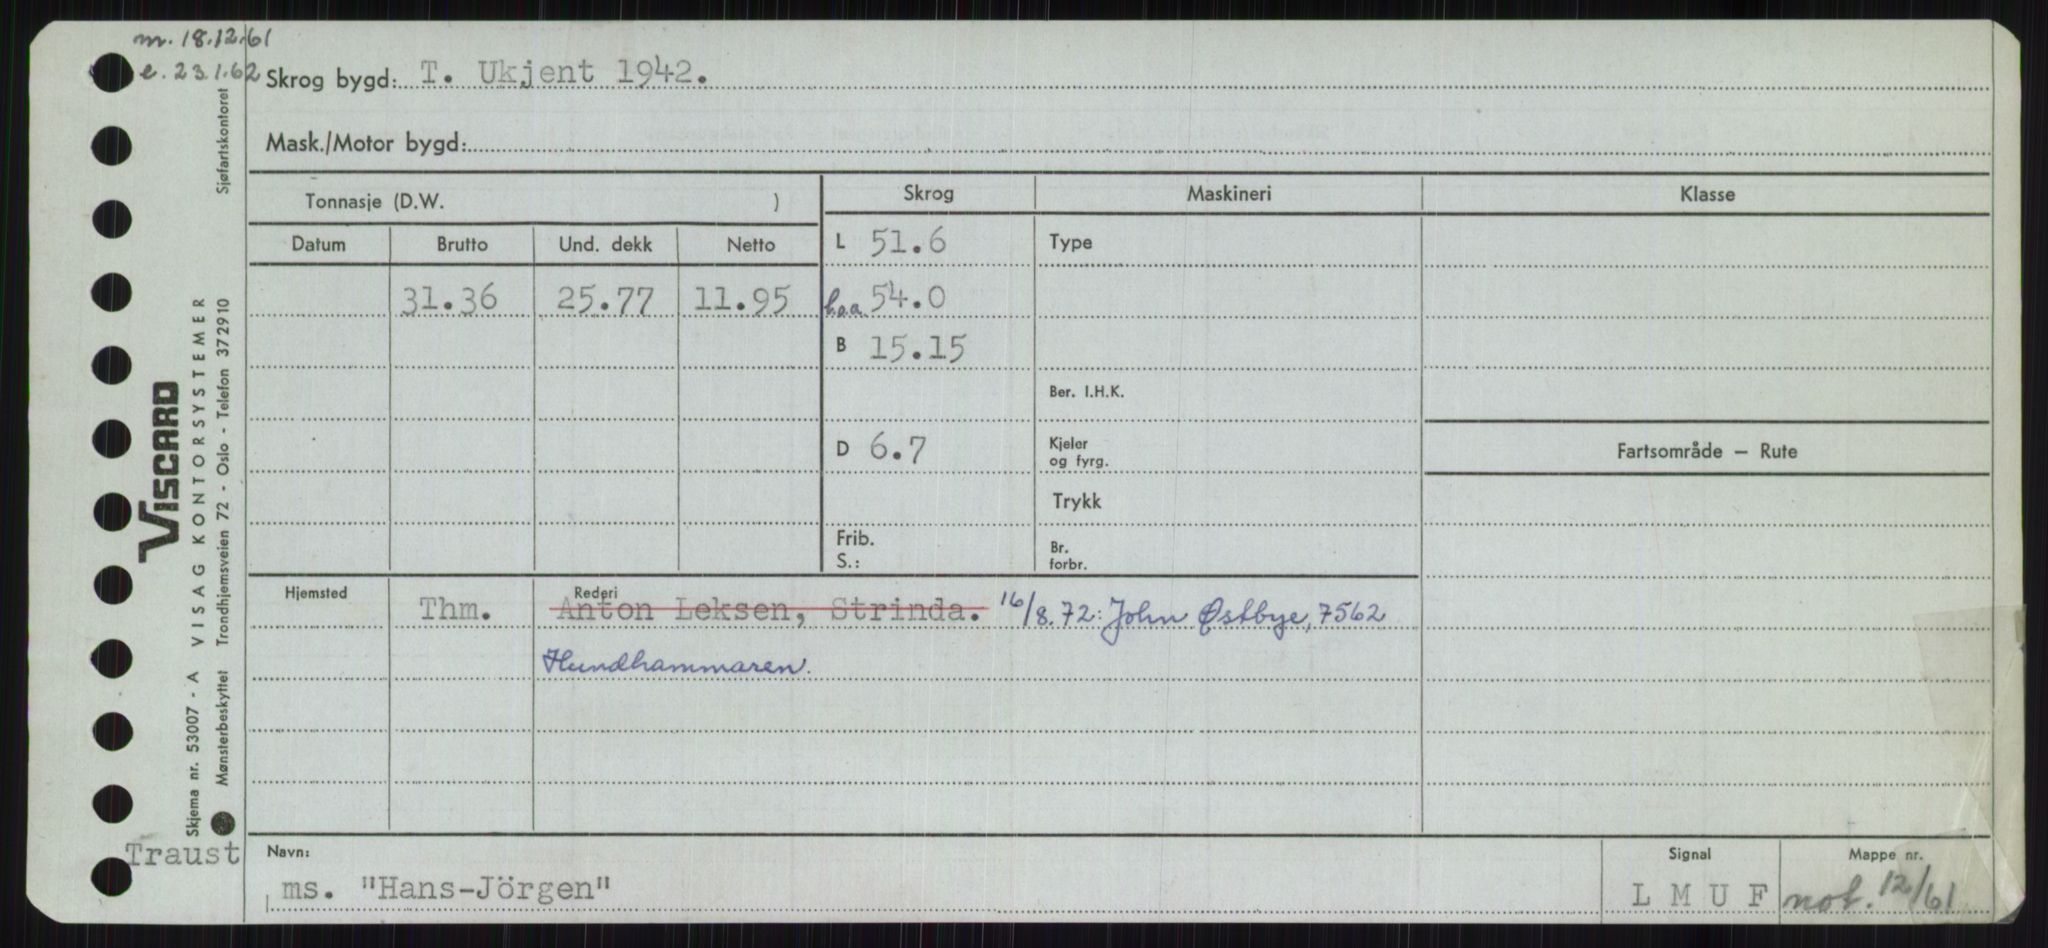 m. 18.12.61
e. 23.1.62
Skrog bygd: T. Ukjent 1942.
Mask./Motor bygd:
Tonnasje (D.W. )
Skrog
Maskineri
Klasse
Datum
Brutto
Und. dekk
Netto
L 51.6
Type
31.36
25.77
11.95
l.o.a. 54.0
B 15.15
Ber. I.H.K.
D 6.7
Kjeler
og fyrg.
Fartsområde — Rute
Trykk
Frib.
S.:
Br.
forbr.
Hjemsted
Rederi
Thm.
Anton Leksen, Strinda. 16/8.72: John Østbye, 7562
Hundhammaren.
Navn:
ms. "Hans-Jörgen"
Signal
L M U F
Mappe nr.
not. 12/61
Traust
VISCARD
VISAG KONTORSYSTEMER
Skjema nr. 53007 - A
Mønsterbeskyttet Trondhjemsveien 72 - Oslo - Telefon 372910 Sjøfartskontoret